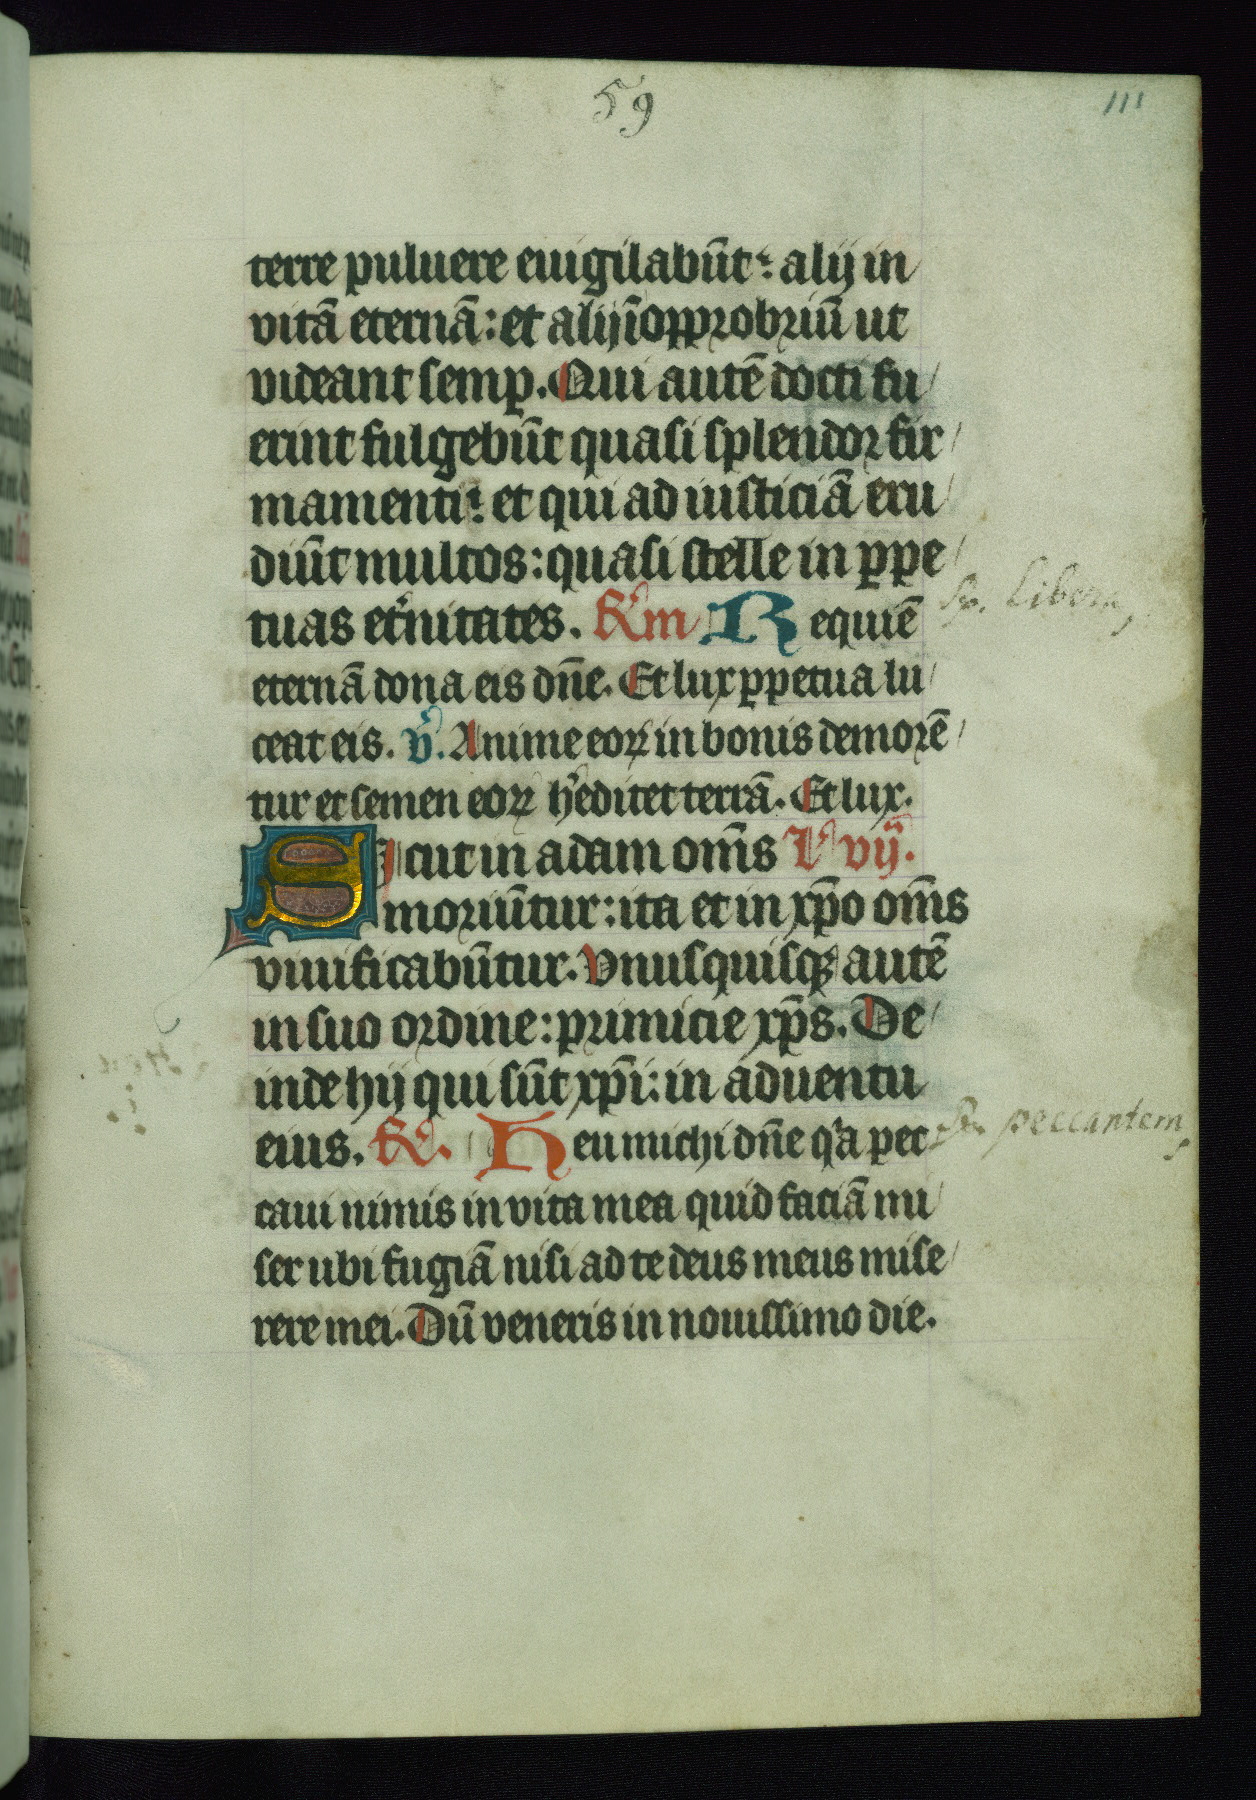 59
111
terre puluere euigilabūt: alij in
vitā eternā: et alij ī opprobriū ut
videant semp. Qui autē docti fu
erint fulgebūt quasi splendor fir
mamenti: et qui ad iusticiā eru
diūt multos: quasi stelle in ppe
tuas et̾nitates. R̾m Requiē
R. Libera,
eternā dona eis dn̄e. Et lux ppetua lu
ceat eis. v̾. Anime eoꝝ in bonis demorē
tur et semen eoꝝ h̾editet terrā. Et lux.
Sicut in adam om̄s L̾ vij.
moriūtur: ita et in xp̄o om̄s
viuificabūtur. Vnusquisqꝫ autē
in suo ordine: primicie xp̄s. De
inde hij qui sūt xp̄i: in aduentu
eius. R̾. Heu michi dn̄e qͣa pec
R. peccantem,
caui nimis in vita mea quid faciā mi
ser ubi fugiā nisi ad te deus meus mise
rere mei. Dū veneris in nouissimo die.